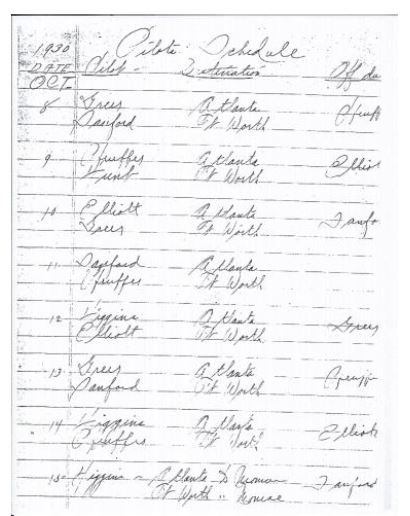 1930 Pilots Schedule
DATE Pilot - Destination Off du
OCT
8 Greer Atlanta
Sanford Ft Worth
9 Atlanta Elliot
Ft Worth
10 Elliott Atlanta Sanfo
Greer Ft Worth
11 Sanford Atlanta
Ft Worth
12 Higgins Atlanta Greer
Elliott Ft Worth
13 Greer Atlanta
Sanford Ft Worth
14 Higgins Atlanta Elliott
Ft Worth
15 Higgins - Atlanta to Monroe Sanford
Ft Worth " Monroe